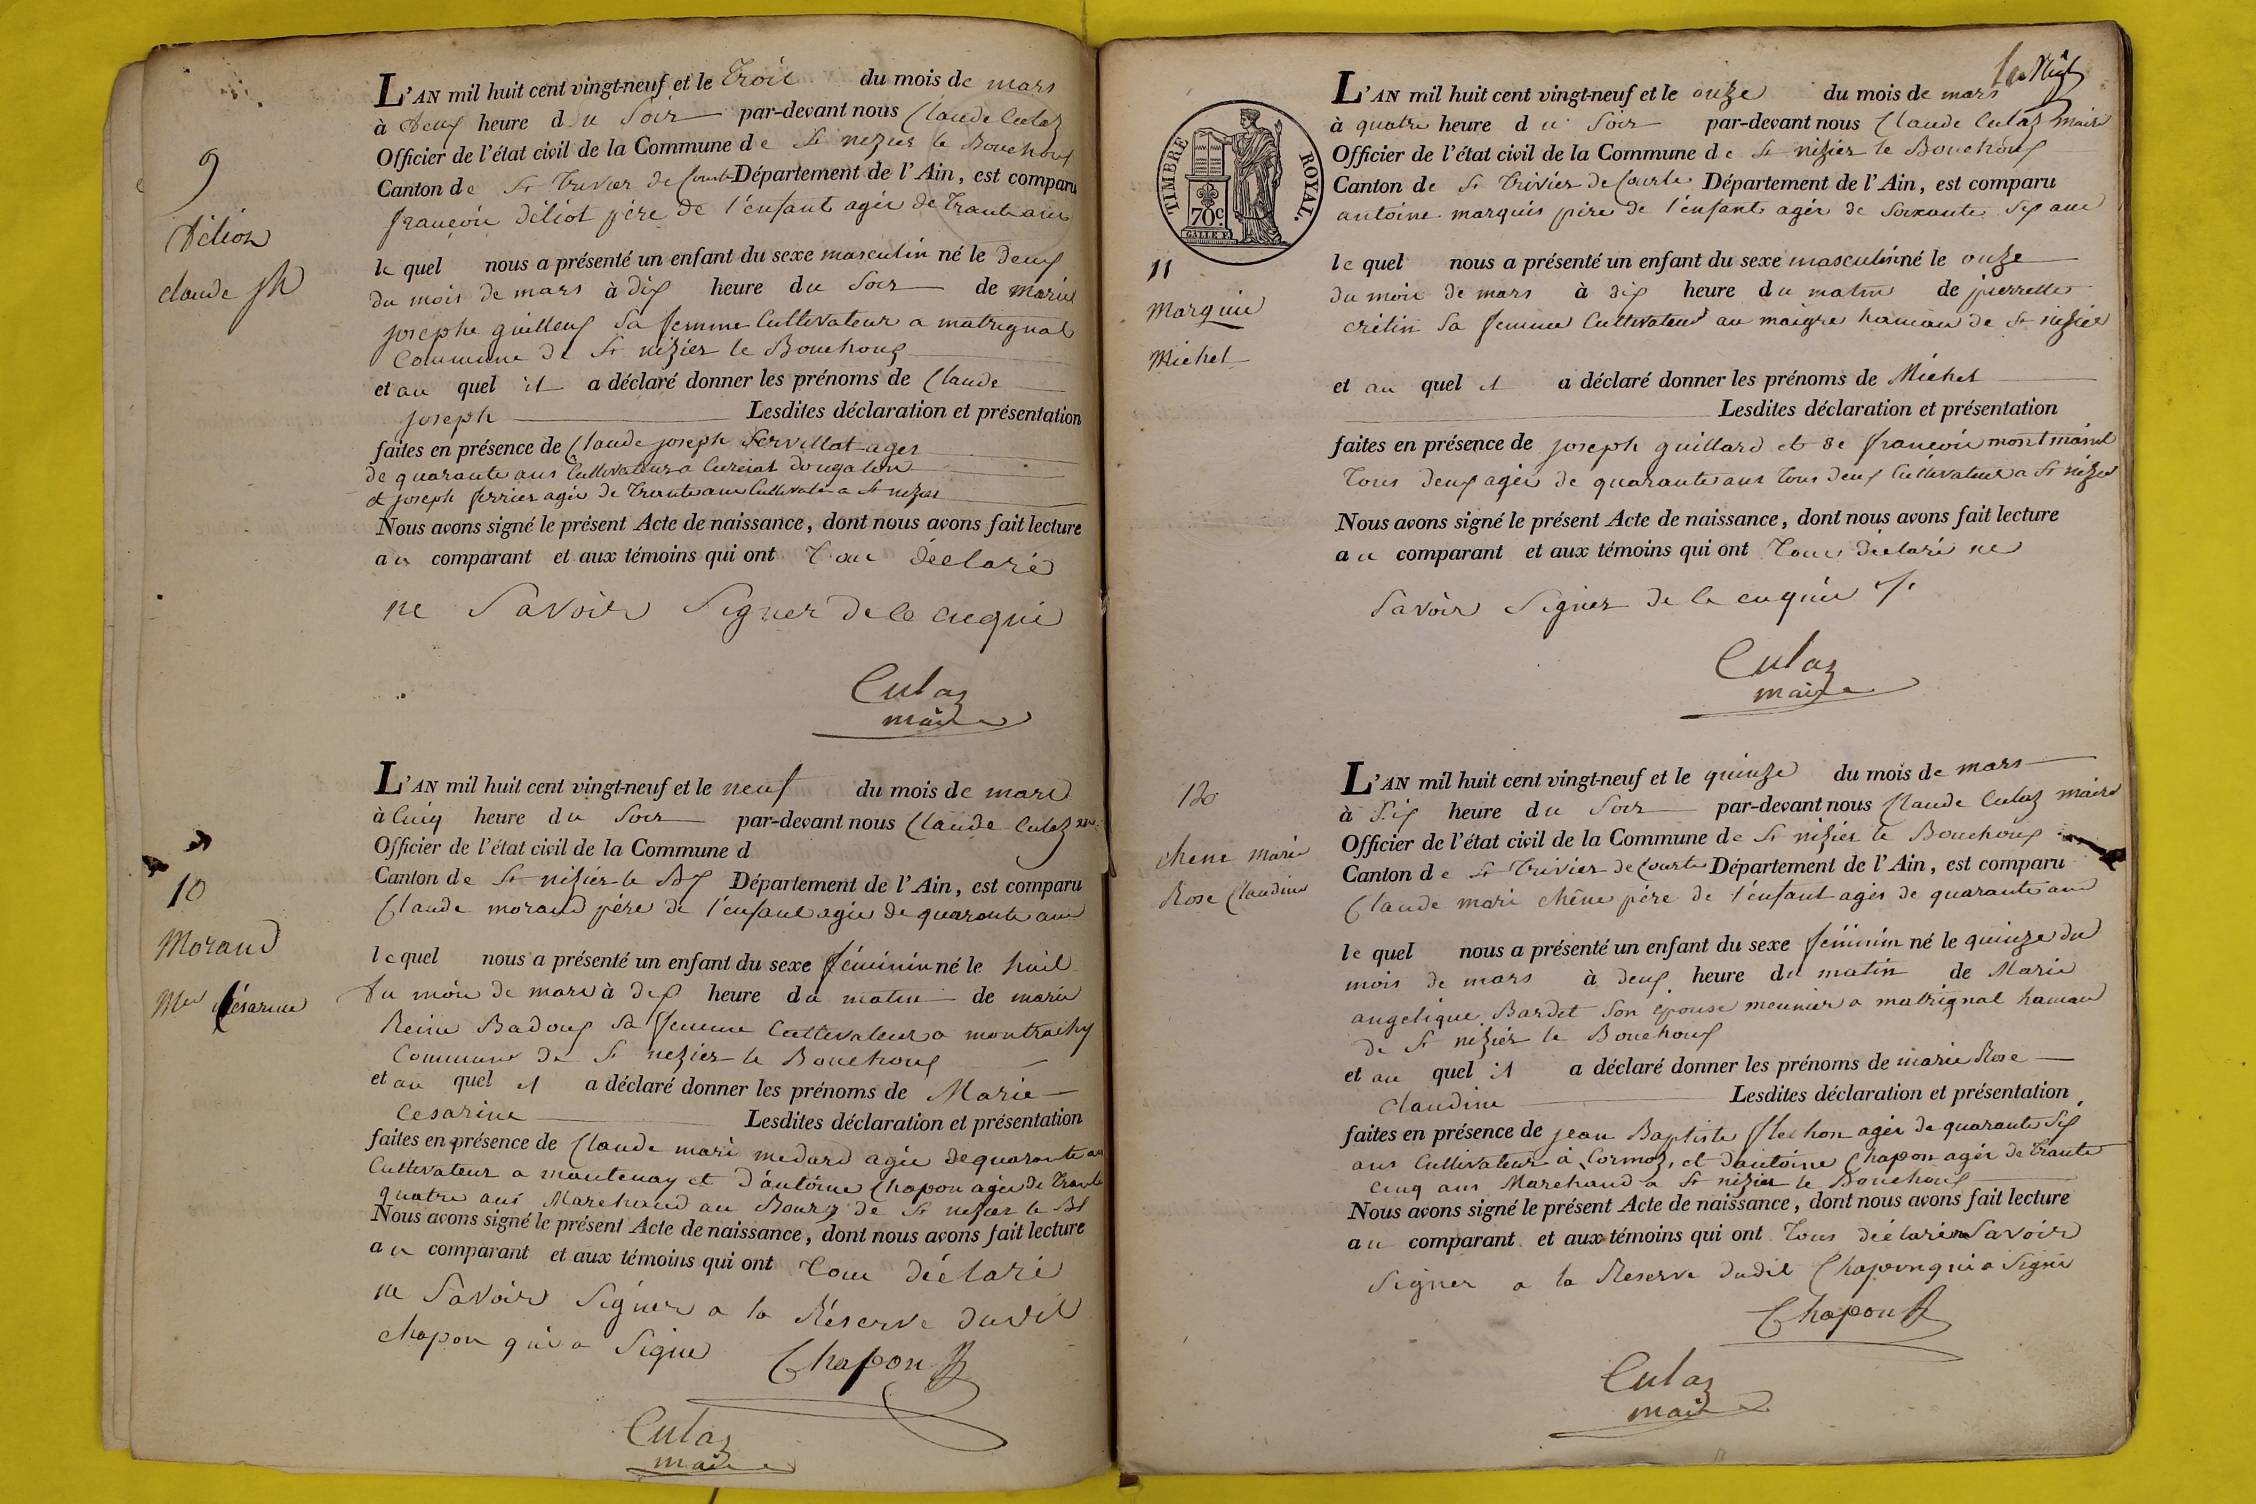 9
déliot
claude jh
L'AN mil huit cent vingt-neuf et le Trois du mois de mars
à deux heure du Soir par-devant nous Claude Culaz
Officier de l'état civil de la Commune de St nizier le Bouchoux
Canton de St Trivier de Courte Département de l'Ain, est comparu
françois déliot père de l'enfant agés de Trante ans
le quel nous a présenté un enfant du sexe masculin né le deux
du mois de mars à dix heure du Soir de marie
josephe guilleux sa femme Cultivateur a matrignat
Commune de St nizier le Bouchoux
et au quel il a déclaré donner les prénoms de Claude
joseph Lesdites déclaration et présentation
faites en présence de Claude joseph Servillat ages
de quarante ans Cultivateur a Curciat dongalon
et joseph ferrier agés de Trente ans Cultivate a St nizier
Nous avons signé le présent Acte de naissance, dont nous avons fait lecture
au comparant et aux témoins qui ont Tous déclaré
ne Savoir Signer de le enquis
Culaz
maire
10
Morand
Mie Césarine
L'AN mil huit cent vingt-neuf et le neuf du mois de mars
à Cinq heure du Soir par-devant nous Claude Culaz
Officier de l'état civil de la Commune d
Canton de St nizier le Bx Département de l'Ain, est comparu
Claude morand père de l'enfant agés de quarante ans
le quel nous a présenté un enfant du sexe féminin né le huit
du mois de mars à dix heure du matin de marie
Reine Badoux sa femme Cultivateur a montrachy
Commune de St nezier le Bouchoux
et au quel il a déclaré donner les prénoms de Marie
Cesarine Lesdites déclaration et présentation
faites en présence de Claude mari medard agés de quarante an
Cultivateur a mantenay et d'antoine Chapon agés de Trante
quatre ans Marchand au Bourg de St nizier le Bx
Nous avons signé le présent Acte de naissance, dont nous avons fait lecture
au comparant et aux témoins qui ont Tous déclaré
ne Savoir Signer a la Réserve dudit
chapon qui a Signé Chapon
Culaz
maire
TIMBRE ROYAL.
70c
GALLE F.
11
Marquis
Michel
L'AN mil huit cent vingt-neuf et le onze du mois de mars
à quatre heure du Soir par-devant nous Claude Culaz maire
Officier de l'état civil de la Commune de St nizier le Bouchoux
Canton de St Trivier de Courte Département de l'Ain, est comparu
antoine marquis père de l'enfant agés de Soixante Six ans
le quel nous a présenté un enfant du sexe masculin né le onze
du mois de mars à dix heure du matin de pierrette
crétin Sa femme Cultivateur au maigre hameau de St nizier
et au quel il a déclaré donner les prénoms de Michel
Lesdites déclaration et présentation
faites en présence de joseph guillard et de françois montmaint
Tous deux agés de quarante ans Tous deux Cultivateur a St nizier
Nous avons signé le présent Acte de naissance, dont nous avons fait lecture
au comparant et aux témoins qui ont Tous déclaré ne
Savoir Signer de le enquis
Culaz
maire
12
chene marie
Rose Claudine
L'AN mil huit cent vingt-neuf et le quinze du mois de mars
à Six heure du Soir par-devant nous Claude Culaz maire
Officier de l'état civil de la Commune de St nizier le Bouchoux
Canton de St Trivier de Courte Département de l'Ain, est comparu
Claude mari chêne père de l'enfant agés de quarante ans
le quel nous a présenté un enfant du sexe féminin né le quinze du
mois de mars à deux heure du matin de Marie
angelique Bardet Son epouse meunier a matrignat hameau
de St nizier le Bouchoux
et au quel il a déclaré donner les prénoms de marie Rose
Claudine Lesdites déclaration et présentation
faites en présence de jean Baptiste flechon agés de quarante Six
ans Cultivateur à Cormoz, et d'antoine Chapon agés de Trante
Cinq ans Marchand a St nizier le Bouchoux
Nous avons signé le présent Acte de naissance, dont nous avons fait lecture
au comparant et aux témoins qui ont Tous déclaré ne Savoir
Signer a la Reserve dudit Chapon qui a Signé
Chapon
Culaz
maire